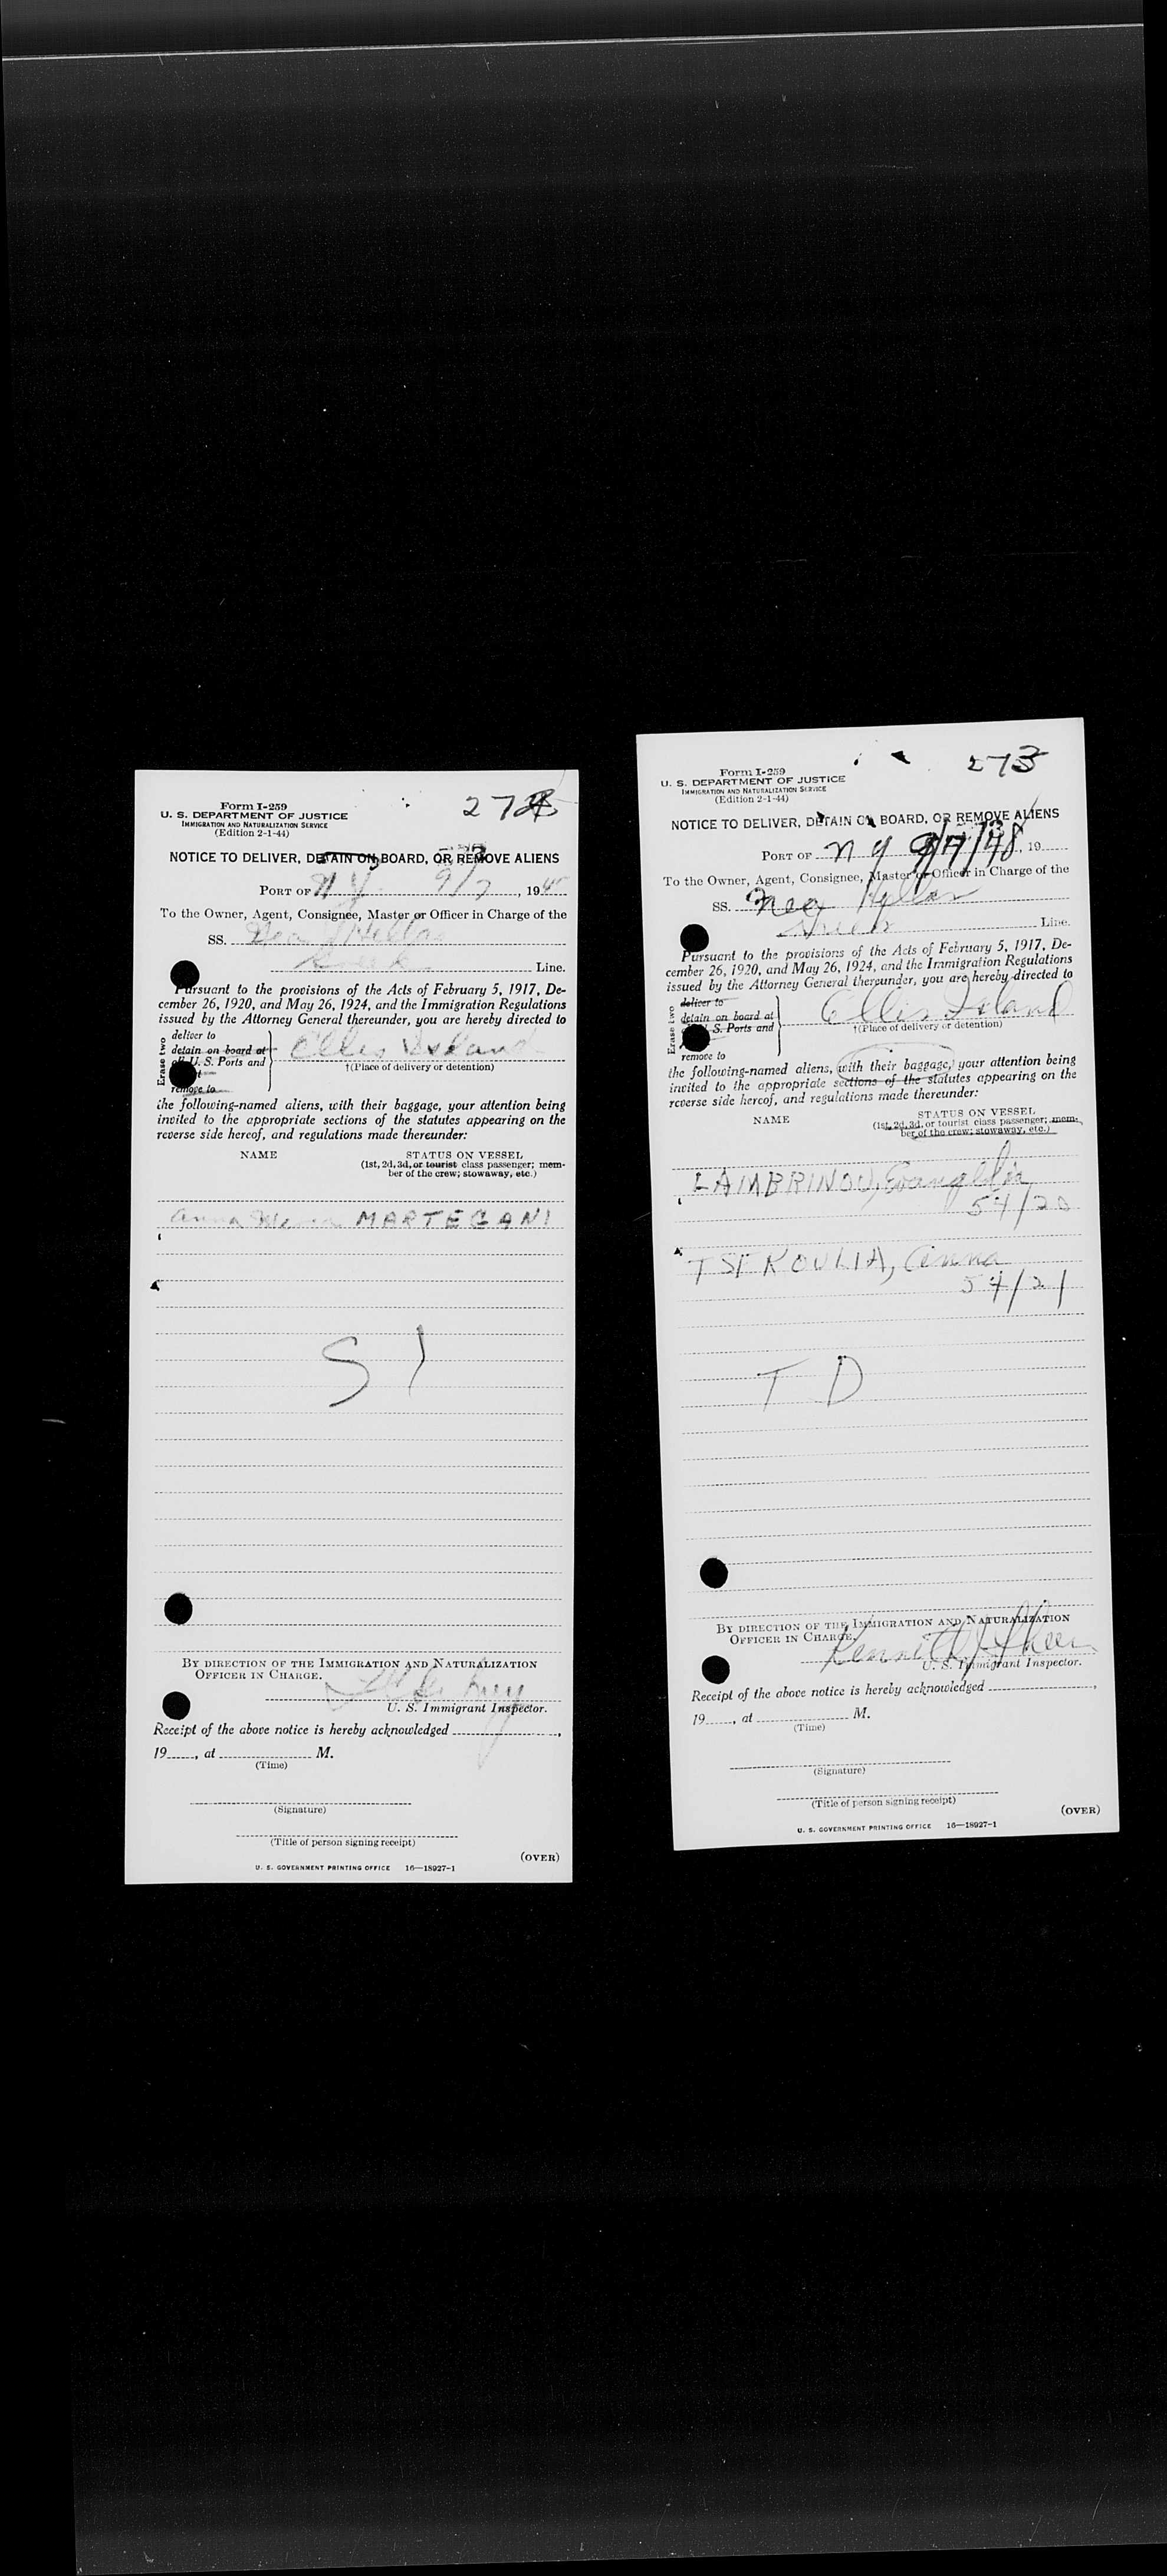 Form I-259
U. S. DEPARTMENT OF JUSTICE
IMMIGRATION AND NATURALIZATION SERVICE
(Edition 2-1-44)
NOTICE TO DELIVER, DETAIN ON BOARD, OR REMOVE ALIENS
PORT OF N Y 9/7, 19
To the Owner, Agent, Consignee, Master or Officer in Charge of the
SS. Nea Hellas
Greek Line.
Pursuant to the provisions of the Acts of February 5, 1917, De-
cember 26, 1920, and May 26, 1924, and the Immigration Regulations
issued by the Attorney General thereunder, you are hereby directed to
Erase two
deliver to
detain on board at
U. S. Ports and
remove to
Ellis Island
†(Place of delivery or detention)
the following-named aliens, with their baggage, your attention being
invited to the appropriate sections of the statutes appearing on the
reverse side hereof, and regulations made thereunder:
NAME STATUS ON VESSEL
(1st, 2d, 3d, or tourist class passenger; mem-
ber of the crew; stowaway, etc.)
Anna MARTEGANI
S I
BY DIRECTION OF THE IMMIGRATION AND NATURALIZATION
OFFICER IN CHARGE.
U. S. Immigrant Inspector.
Receipt of the above notice is hereby acknowledged ,
19 , at M.
(Time)
(Signature)
(Title of person signing receipt)
(OVER)
U. S. GOVERNMENT PRINTING OFFICE 16—18927-1
273
Form I-259
U. S. DEPARTMENT OF JUSTICE
IMMIGRATION AND NATURALIZATION SERVICE
(Edition 2-1-44)
NOTICE TO DELIVER, DETAIN ON BOARD, OR REMOVE ALIENS
PORT OF N Y 9/7/48, 19
To the Owner, Agent, Consignee, Master or Officer in Charge of the
SS. Nea Hellas
Greek Line.
Pursuant to the provisions of the Acts of February 5, 1917, De-
cember 26, 1920, and May 26, 1924, and the Immigration Regulations
issued by the Attorney General thereunder, you are hereby directed to
Erase two
deliver to
detain on board at
U. S. Ports and
remove to
Ellis Island
†(Place of delivery or detention)
the following-named aliens, with their baggage, your attention being
invited to the appropriate sections of the statutes appearing on the
reverse side hereof, and regulations made thereunder:
NAME STATUS ON VESSEL
(1st, 2d, 3d, or tourist class passenger; mem-
ber of the crew; stowaway, etc.)
LAMBRINOU, Evangelia
54/20
TSEKOULIA, Anna
54/21
T D
BY DIRECTION OF THE IMMIGRATION AND NATURALIZATION
OFFICER IN CHARGE.
Kenneth J
U. S. Immigrant Inspector.
Receipt of the above notice is hereby acknowledged ,
19 , at M.
(Time)
(Signature)
(Title of person signing receipt)
(OVER)
U. S. GOVERNMENT PRINTING OFFICE 16—18927-1